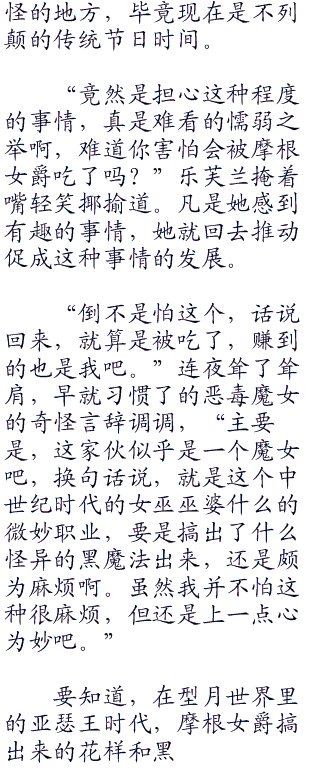 怪的地方，毕竟现在是不列
颠的传统节日时间。
“竟然是担心这种程度
的事情，真是难看的懦弱之
举啊，难道你害怕会被摩根
女爵吃了吗？”乐芙兰掩着
嘴轻笑揶揄道。凡是她感到
有趣的事情，她就回去推动
促成这种事情的发展。
“倒不是怕这个，话说
回来，就算是被吃了，赚到
的也是我吧。”连夜耸了耸
肩，早就习惯了的恶毒魔女
的奇怪言辞调调，“主要
是，这家伙似乎是一个魔女
吧，换句话说，就是这个中
世纪时代的女巫巫婆什么的
微妙职业，要是搞出了什么
怪异的黑魔法出来，还是颇
为麻烦啊。虽然我并不怕这
种很麻烦，但还是上一点心
为妙吧。”
要知道，在型月世界里
的亚瑟王时代，摩根女爵搞
出来的花样和黑